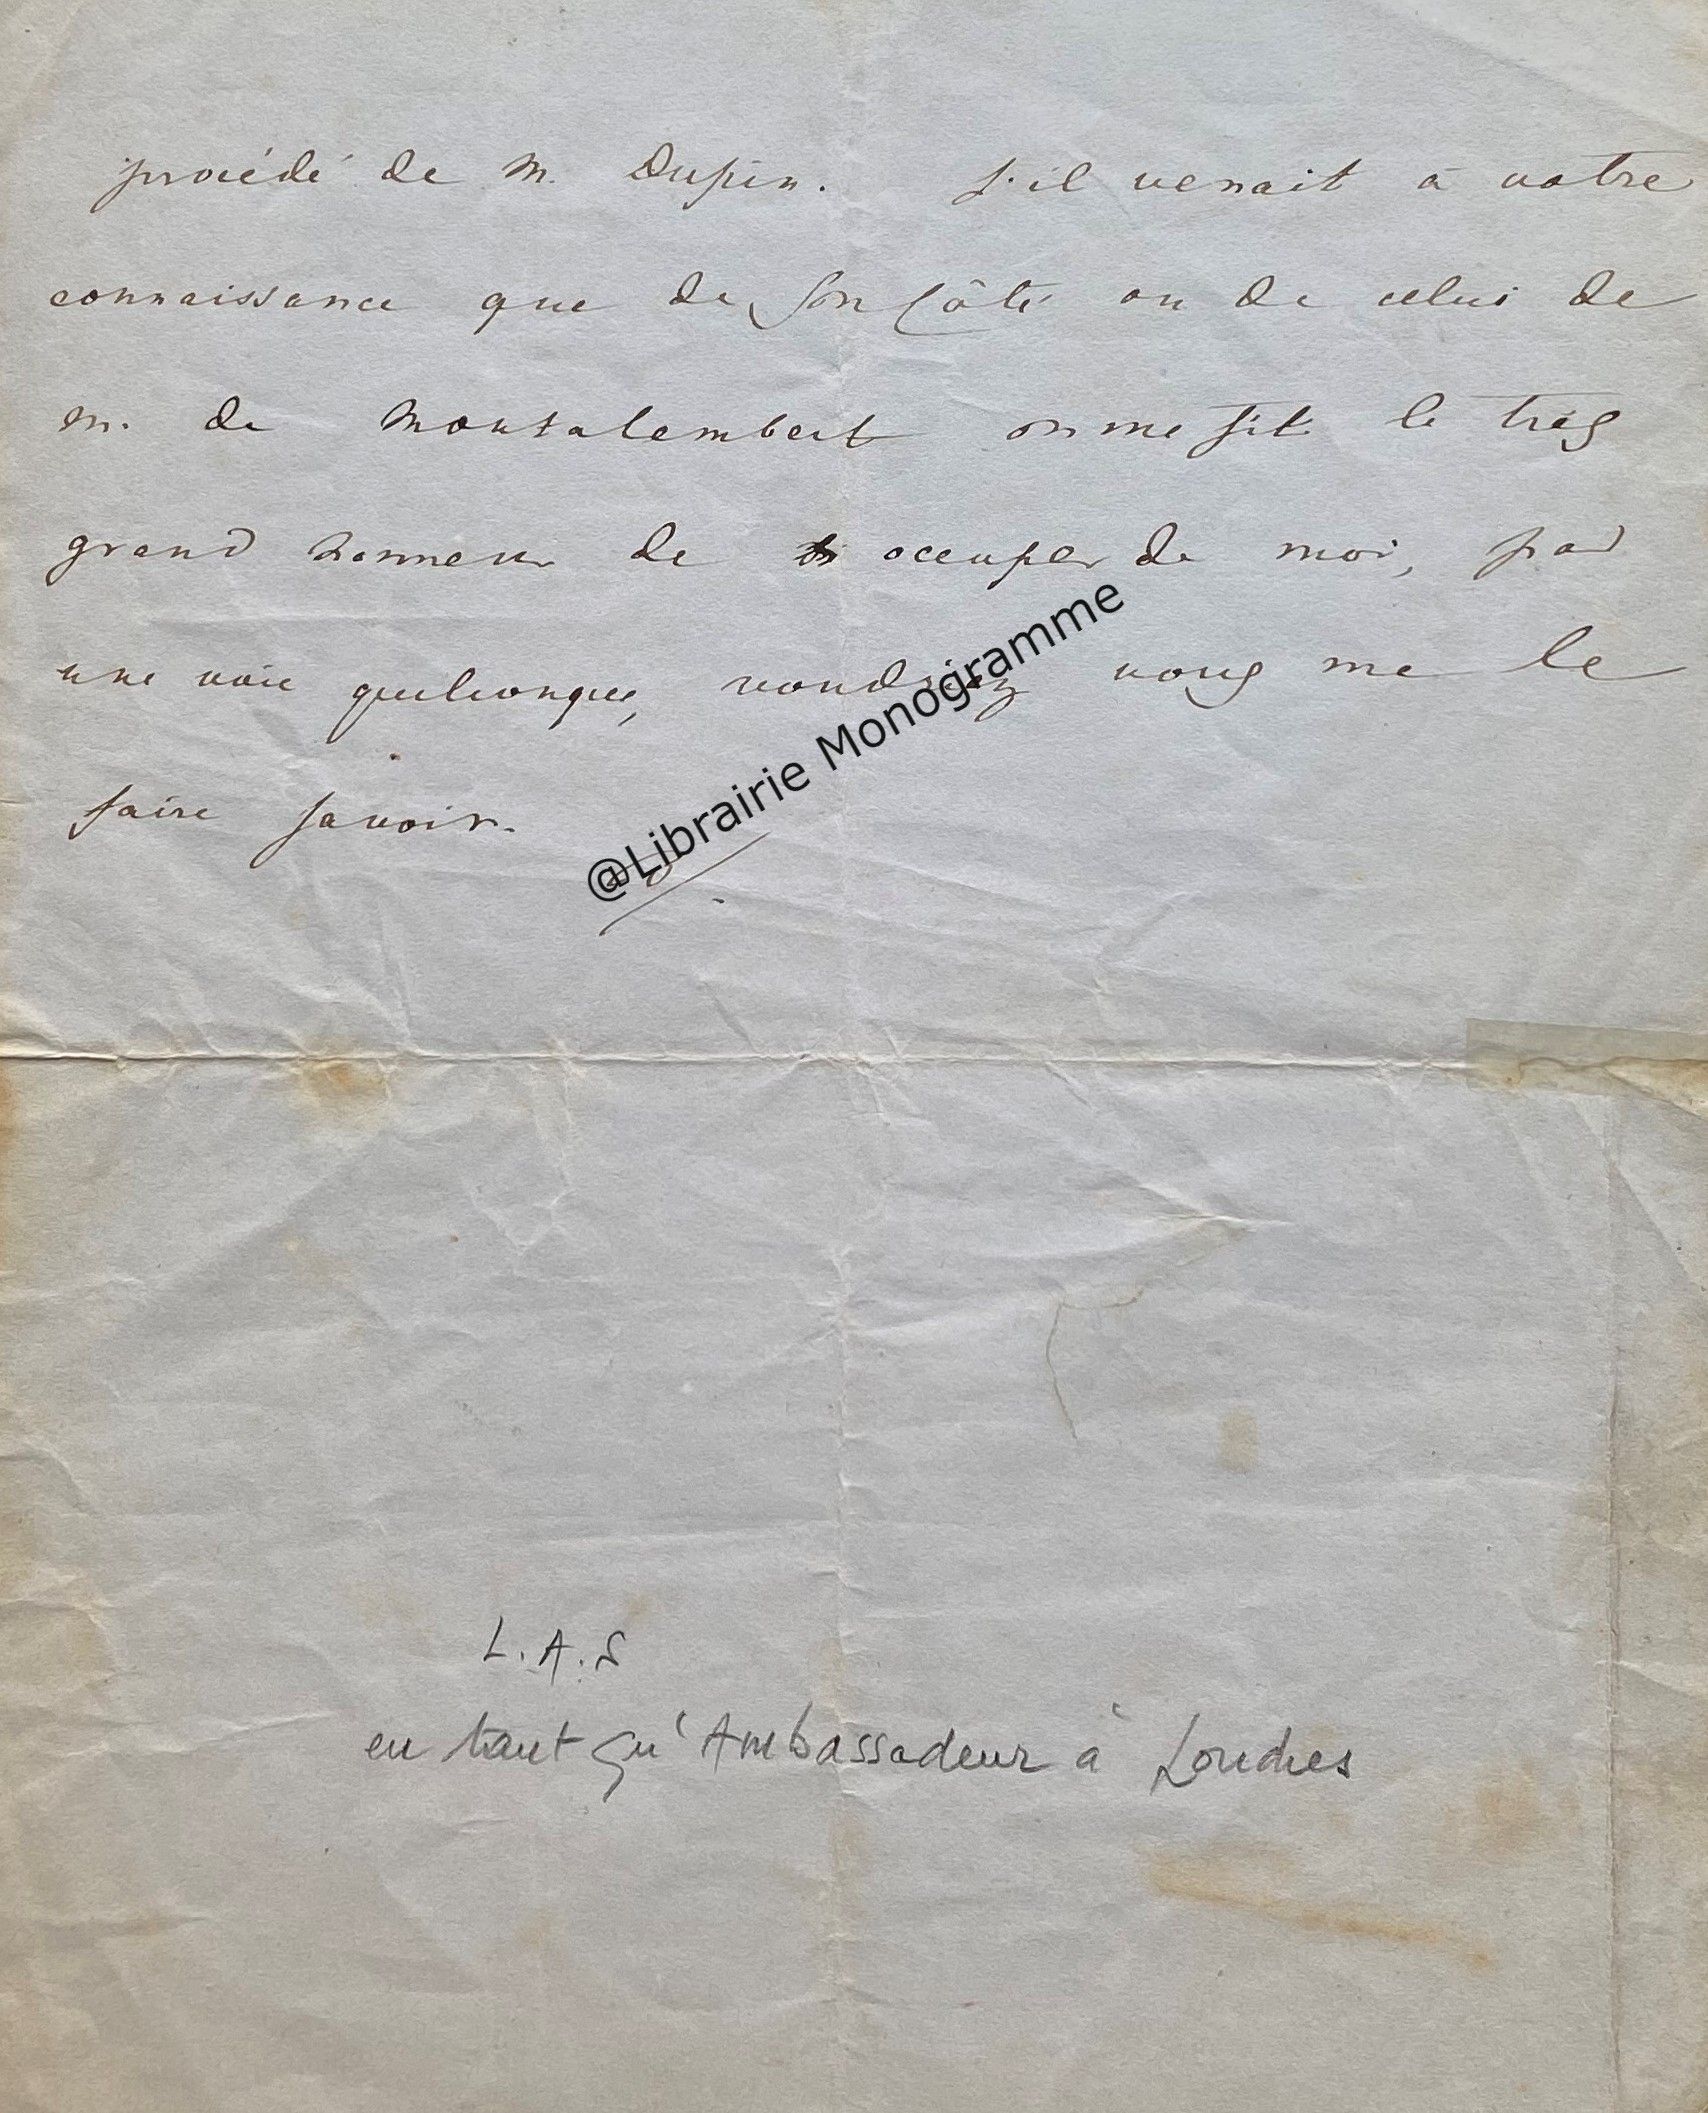 procédé de M. Dupin. s'il venait à votre
connaissance que de son côté ou de celui de
m. de Montalembert on me fit le très
grand honneur de occuper de moi, par
une voie quelconque, voudriez vous me le
faire savoir.
@Librairie Monogramme
L.A.S
en tant qu'Ambassadeur à Londres